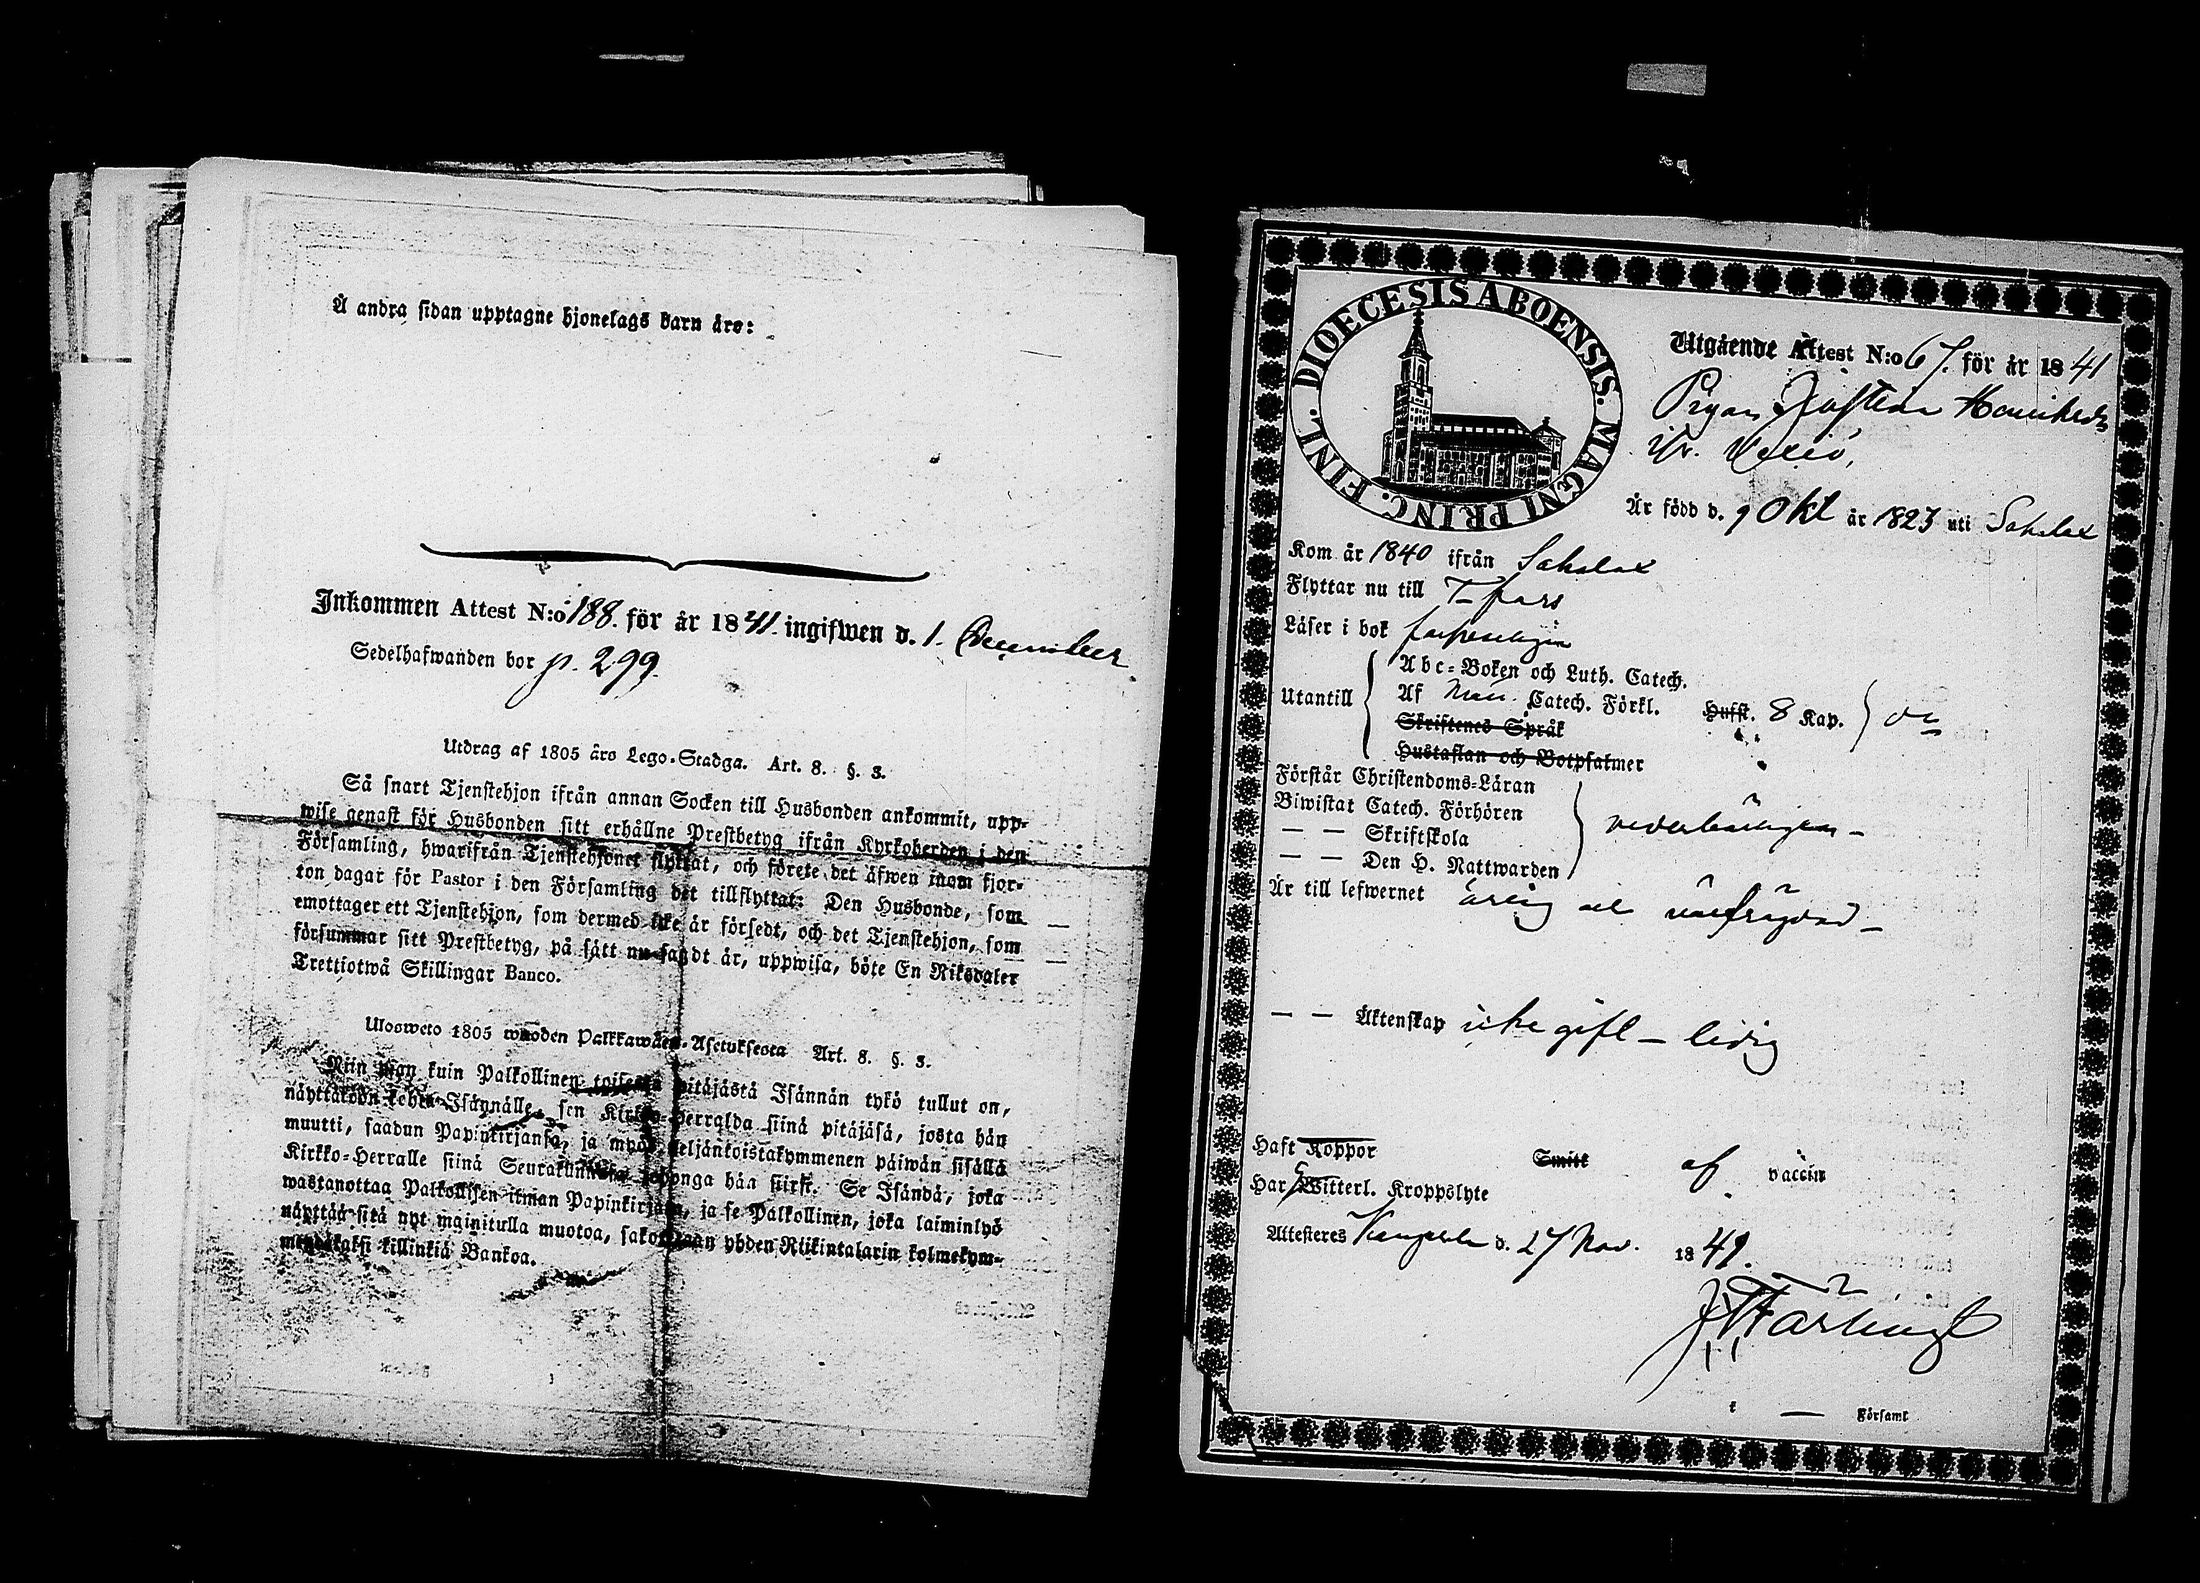 Å andra sidan upptagne hjonelags barn äro:
Inkommen Attest N:o 188. för år 1841. ingifwen d. 1. December
Sedelhafwanden bor p. 299.
Utdrag af 1805 års Lego-Stadga. Art. 8. §. 3.
Så snart Tjenstehjon ifrån annan Socken till Husbonden ankommit, upp-
wise genast för Husbonden sitt erhållne Prestbetyg ifrån Kyrkoherden i den
Församling, hwarifrån Tjenstehjonet flyttat, och förete det äfwen inom fjor-
ton dagar för Pastor i den Församling det tillflyttat: Den Husbonde, som
emottager ett Tjenstehjon, som dermed icke är försedt, och det Tjenstehjon, som
försummar sitt Prestbetyg, på sätt nu sagdt är, uppwisa, böte En Riksdaler
Trettiotwå Skillingar Banco.
Ulosweto 1805 wuoden Palkkawäen-Asetuksesta Art. 8. §. 3.
Niin pian kuin Palkollinen toisesta pitäjästä Isännän tykö tullut on,
näyttäköön kohta Isännälle, sen Kirkko-Herralda siinä pitäjäsä, josta hän
muutti, saadun Papinkirjansa, ja myös neljäntoistakymmenen päiwän sisällä
Kirkko-Herralle siinä Seurakunnassa johonga hän siirst. Se Isändä, joka
wastanottaa Palkollisen ilman Papinkirjata, ja se Palkollinen, joka laiminlyö
näyttää sitä nyt mainitulla muotoa, sakotetaan yhden Riikintalarin kolmekym-
mendäkaksi killinkiä Bankoa.
DIOECESIS ABOENSIS. MAGNI PRINC. FINL.
Utgående Attest N:o 67. för år 1841
Pigan
Är född d. 9 Okt år 1823 uti Sahalax
Kom år 1840 ifrån Sahalax
Flyttar nu till T-fors
Läser i bok
Utantill
Abc-Boken och Luth. Catech.
Af Catech. Förkl. Husst. 8 Kap.
Skriftenes Språk
Hustaflan och Botpsalmer
Förstår Christendoms-Läran
Biwistat Catech. Förhören
— — Skriftskola
— — Den H. Nattwarden
Är till lefwernet ärlig
— — Äktenskap icke gift – ledig
Haft Koppor Smitt af vaccin
Har Witterl. Kroppslyte
Attesteres d. 27 Nov. 1841.
i — Församl